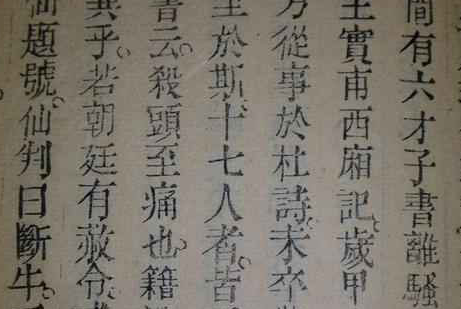 間有六才子書離騷
王實甫西廂記歲甲
乃從事於杜詩未卒
至於斯十七人者皆
書云殺頭至痛也籍
異乎若朝廷有赦令
仙題號仙判曰斷牛